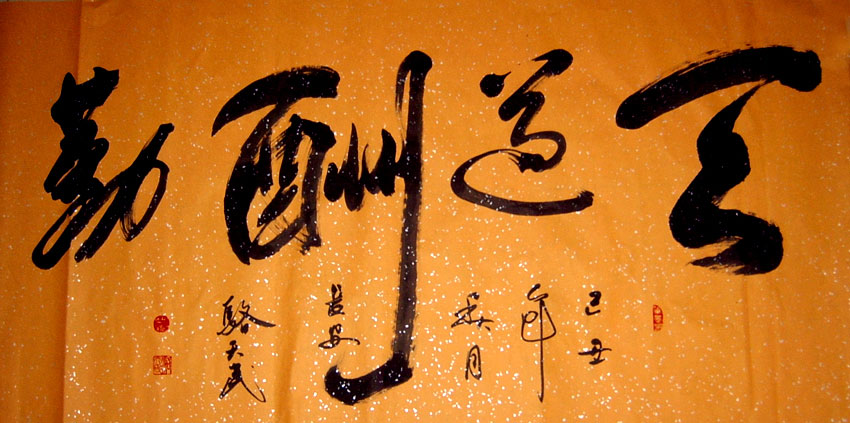 天道酬勤
己丑年秋月長安駱天武